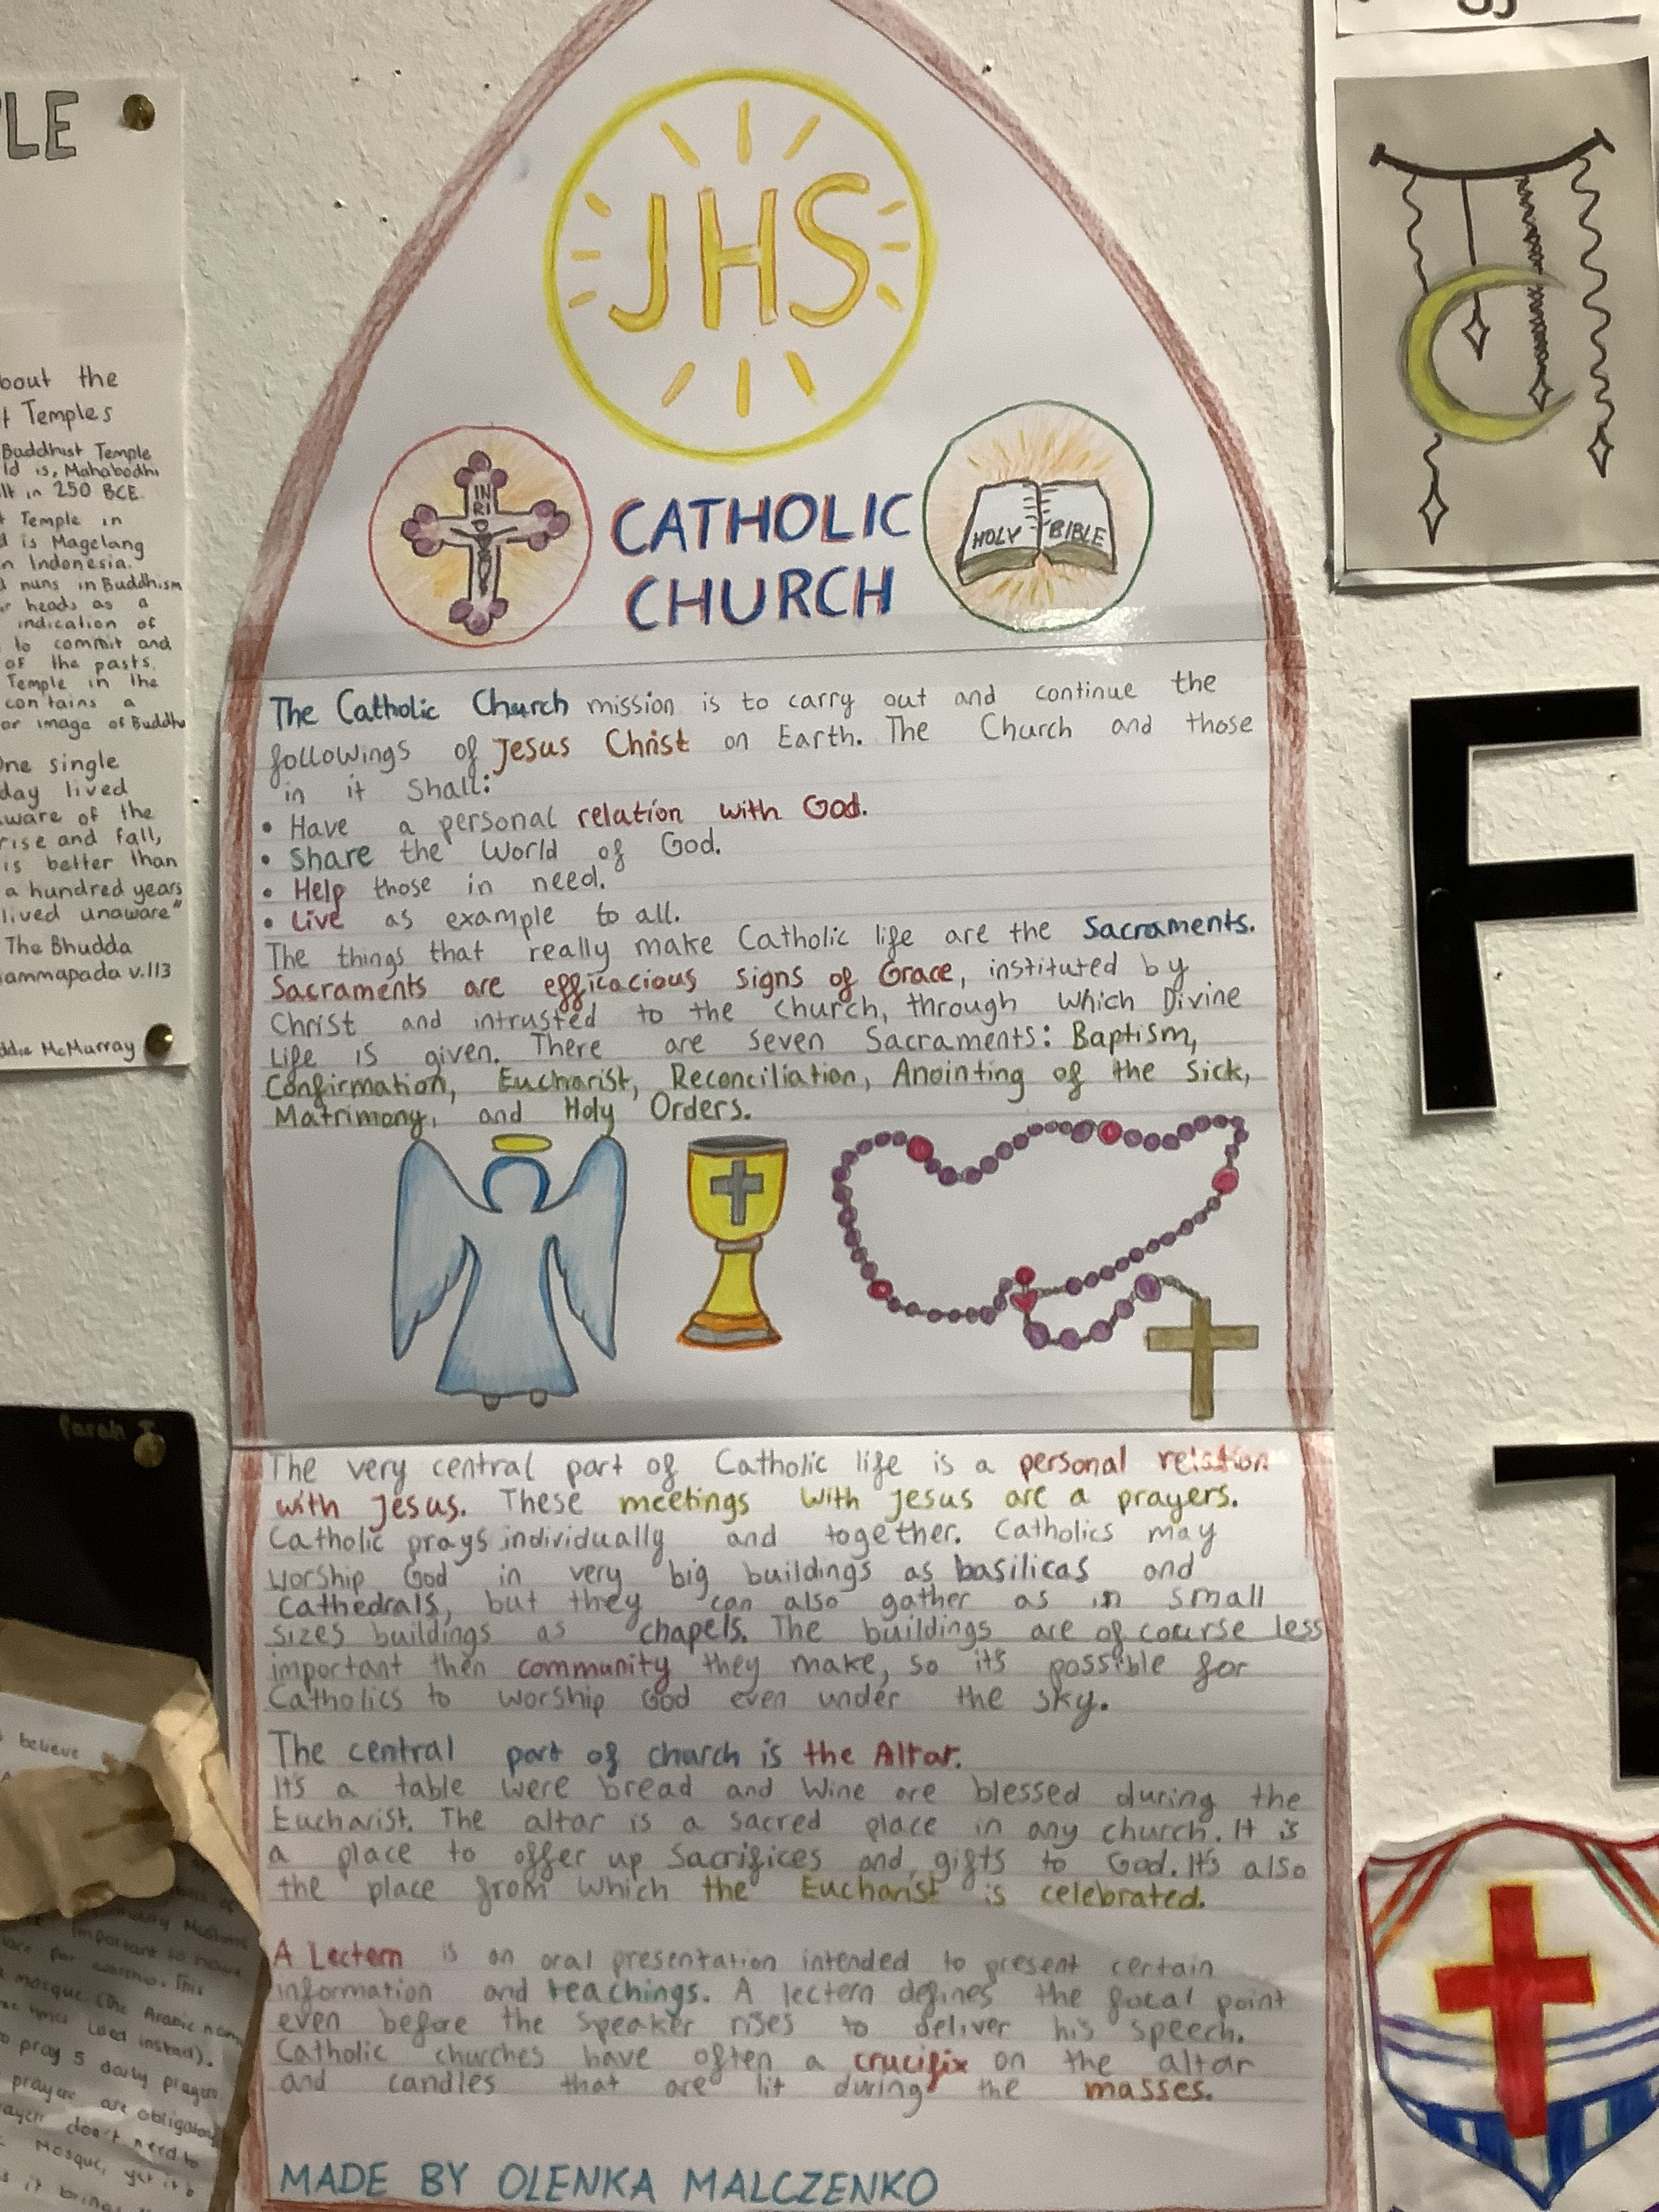 LE
bout the
Temples
Buddhist Temple
ld is, Mahabodhi
lt in 250 BCE.
Temple in
d is Magelang
n Indonesia.
d nuns in Buddhism
r heads as a
indication of
to commit and
of the pasts.
Temple in the
contains a
or image of Buddha
One single
day lived
ware of the
rise and fall,
is better than
a hundred years
lived unaware"
The Bhudda
ammapada v.113
ddie McMurray
Farah
believe
JHS
IN
RI
HOLY BIBLE
CATHOLIC
CHURCH
The Catholic Church mission is to carry out and continue the
followings of Jesus Christ on Earth. The Church and those
in it Shall:
• Have a personal relation with God.
• Share the World of God.
• Help those in need.
• Live as example to all.
The things that really make Catholic life are the Sacraments.
Sacraments are efficacious signs of Grace, instituted by
Christ and intrusted to the Church, through which Divine
Life is given. There are seven Sacraments: Baptism,
Confirmation, Eucharist, Reconciliation, Anointing of the Sick,
Matrimony, and Holy Orders.
The very central part of Catholic life is a personal relation
with Jesus. These meetings with Jesus are a prayers.
Catholic prays individually and together. Catholics may
worship God in very big buildings as basilicas and
Cathedrals, but they can also gather as in small
sizes buildings as chapels. The buildings are of course less
important then community they make, so it's possible for
Catholics to worship God even under the sky.
The central part of church is the Altar.
It's a table were bread and Wine are blessed during the
Eucharist. The altar is a sacred place in any church. It is
a place to offer up Sacrifices and gifts to God. It's also
the place from which the Eucharist is celebrated.
A Lectern is an oral presentation intended to present certain
information and teachings. A lectern defines the focal point
even before the speaker rises to deliver his speech.
Catholic churches have often a crucifix on the altar
and candles that are lit during the masses.
MADE BY OLENKA MALCZENKO
Muslims
important to
for worship. This
mosque (the Arabic
used instead).
pray 5 daily prayers
prayer are obligatory
don't need to
Mosque, yet it's
it brings
F
T